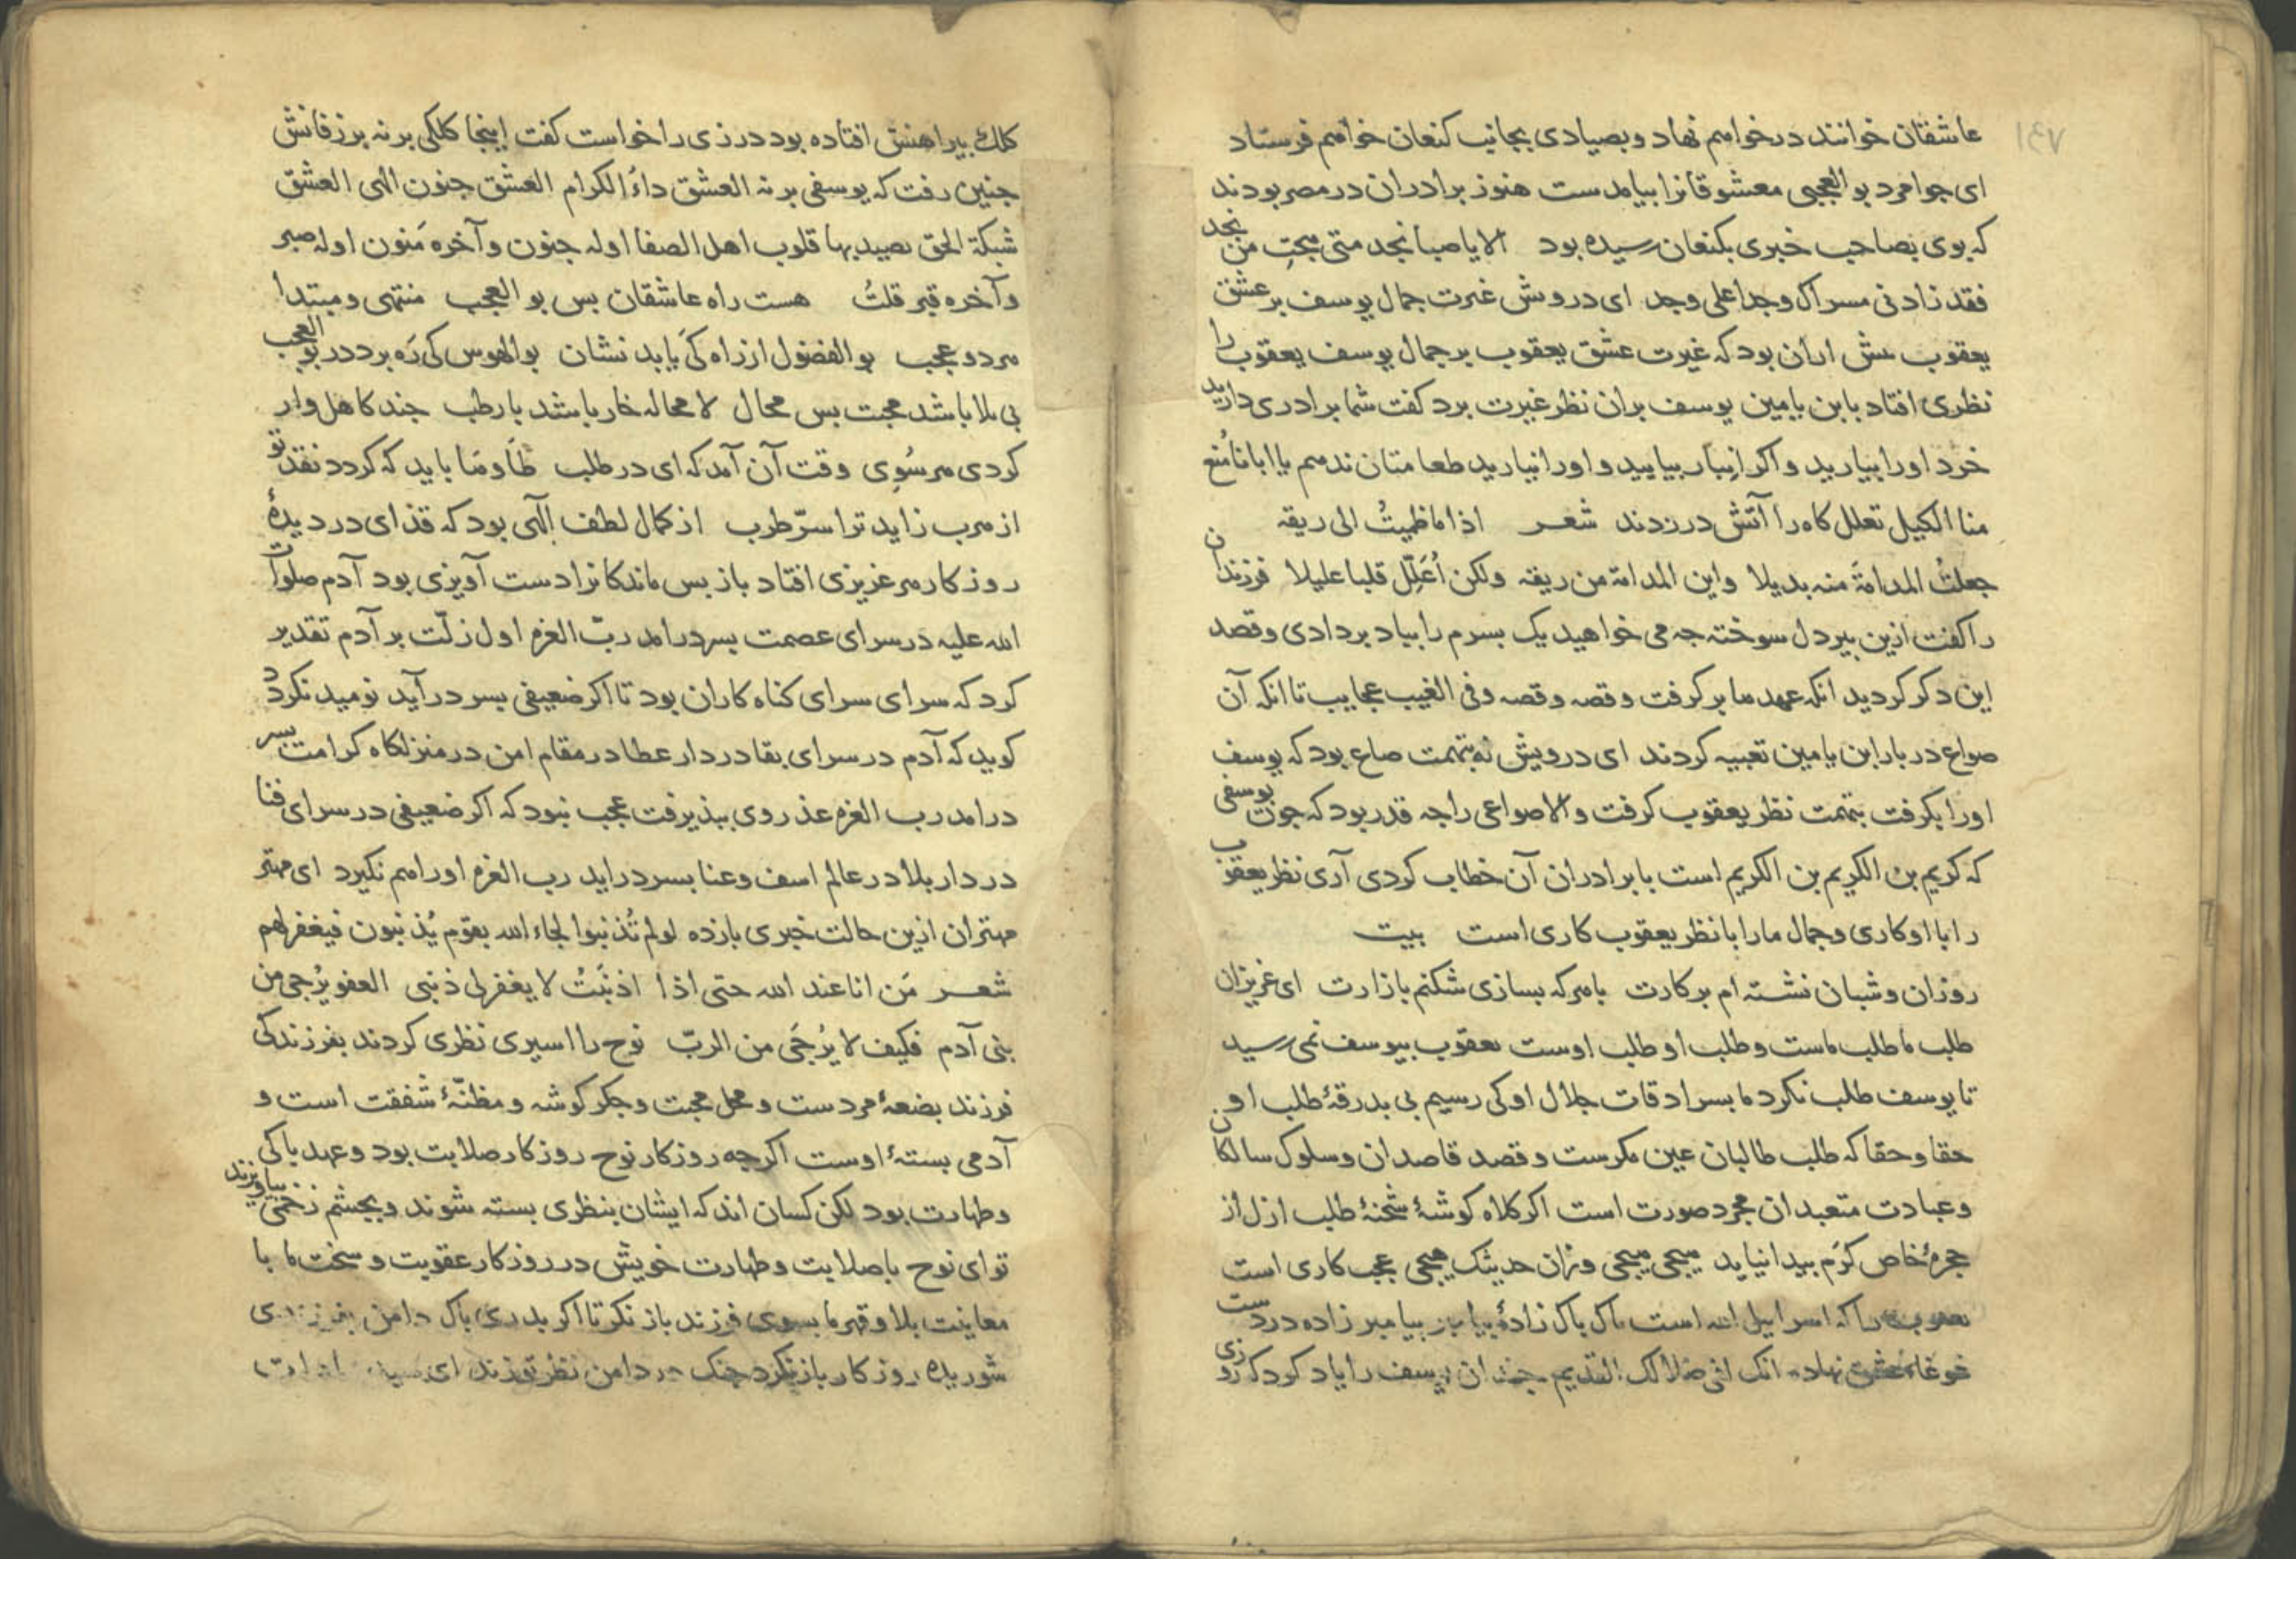 ١٤٧
عاشقان خوانند درخواهم نهاد و بصیادی بجانب کنعان خواهم فرستاد
ای جوامرد بو العجبی معشوقانرا بیامدست هنوز برادران در مصر بودند
که بوی بصاحب خبری بکنعان رسیده بود الایا صبا نجد متی هجتِ من نجد
فقد زادنی مسراک وجدا علی وجد ای درویش غیرت جمال یوسف بر عشق
یعقوب بیش ازان بود که غیرت عشق یعقوب بر جمال یوسف یعقوب را
نظری افتاد با بن یامین یوسف بران نظر غیرت برد کفت شما برادری دارید
خرد اورا بیارید و اکر انبار بیایید و اورا نیارید طعامتان ندهم یا ابانا مُنع
منا الکیل تعلل کاه را آتش درزدند شعر اذا ما ظمیتُ الی ریقه
جعلتُ المدامةَ منه بدیلا واین المدامة من ریقه ولکن اُعَلِّل قلبا علیلا فرزندان
را کفت ازین پیر دل سوخته جه می خواهید یک بسرم را بیاد بر دادی و قصد
این دکر کردید انکه عهد ما بر کرفت و قصه و قصه وفی الغیب عجایب تا انکه آن
صواع در بار ابن یامین تعبیه کردند ای درویش نه بتهمت صاع بود که یوسف
اورا بکرفت بتهمت نظر یعقوب کرفت و الا صواعی را جه قدر بود که جون یوسفی
که کریم بن الکریم بن الکریم است با برادران آن خطاب کردی آری نظر یعقوب
را با او کاری و جمال ما را با نظر یعقوب کاری است بیت
روزان و شبان نشسته ام بر کارت با هرکه بسازی شکنم بازارت ای عزیزان
طلب ما طلب ماست و طلب او طلب اوست یعقوب بیوسف نمی رسید
تا یوسف طلب نکرد ما بسرادقات جلال او کی رسیم بی بدرقهٔ طلب او
حقا و حقا که طلب طالبان عین مکرست و قصد قاصدان و سلوک سالکان
و عبادت متعبدان مجرد صورت است اکر کلاه کوشهٔ شحنهٔ طلب ازل از
حجرهٔ خاص کرَم بیدا نیاید هیجی هیجی وزان حدیثک هیجی عجب کاری است
یعقوب را که اسراییل الله است باک باک زادهٔ بیامبر بیامبر زاده در دست
غوغاء عشق نهاده انک لفی ضلالک القدیم جندان یوسف را یاد کرد که روزی
کلک بیراهنش افتاده بود درزی را خواست کفت اینجا کلکی برنه بر زفانش
جنین رفت که یوسفی برنه العشق داءُ الکرام العشق جنون الهی العشق
شبکة الحق یصید بها قلوب اهل الصفا اوله جنون و آخره مَنون اوله صبر
و آخره قبر قلتُ هست راه عاشقان بس بو العجب منتهی و مبتدا
هر دو عجب بو الفضول از راه کَی یابد نشان بو الهوس کی رَه برد در بو العجب
بی بلا باشد محبت بس محال لا محاله خار باشد با رطب جند کاهل وار
کردی هر سُوی وقت آن آمد که ای در طلب ظَاومَا باید که کردد نقد تو
از هرب زاید ترا سرّ طرب از کمال لطف الٓهی بود که قذای در دیدهٔ
روزکار هر عزیزی افتاد باز بس ماندکانرا دست آویزی بود آدم صلوات
الله علیه در سرای عصمت بسر درامد ربّ العزه اول زلّت بر آدم تقدیر
کرد که سرای سرای کناه کاران بود تا اکر ضعیفی بسر درآید نومید نکردد
کوید که آدم در سرای بقا در دار عطا در مقام امن در منزلکاه کرامت بسر
درامد رب العزه عذر وی ببذیرفت عجب نبود که اکر ضعیفی در سرای فنا
در دار بلا در عالم اسف و عنا بسر دراید رب العزه اورا هم نکیرد ای مهتر
مهتران ازین حالت خبری بازده لو لم تُذنبوا لجاء الله بقوم یُذنبون فیغفر لهم
شعر مَن انا عند الله حتی اذا اذنَبتُ لا یغفر لی ذنبی العفو یُرجی من
بنی آدم فکیف لا یُرجَی من الربّ نوح را اسیری نظری کردند بفرزندکی
فرزند بضعهٔ مردست و محل محبت و جکر کوشه و مظنّهٔ شفقت است و
آدمی بستهٔ اوست اکرجه روزکار نوح روزکار صلابت بود و عهد باکی
و طهارت بود لکن کسان اند که ایشان بنظری بسته شوند و بجشم زخمی بیاویزند
تو ای نوح با صلابت و طهارت خویش در روزکار عقوبت و سخت ما با
معاینت بلا و قهر ما بسوی فرزند باز نکر تا اکر بدری باک دامن بفرزندی
شوریده روزکار باز نکرد جنک در دامن نظر تو زند ای